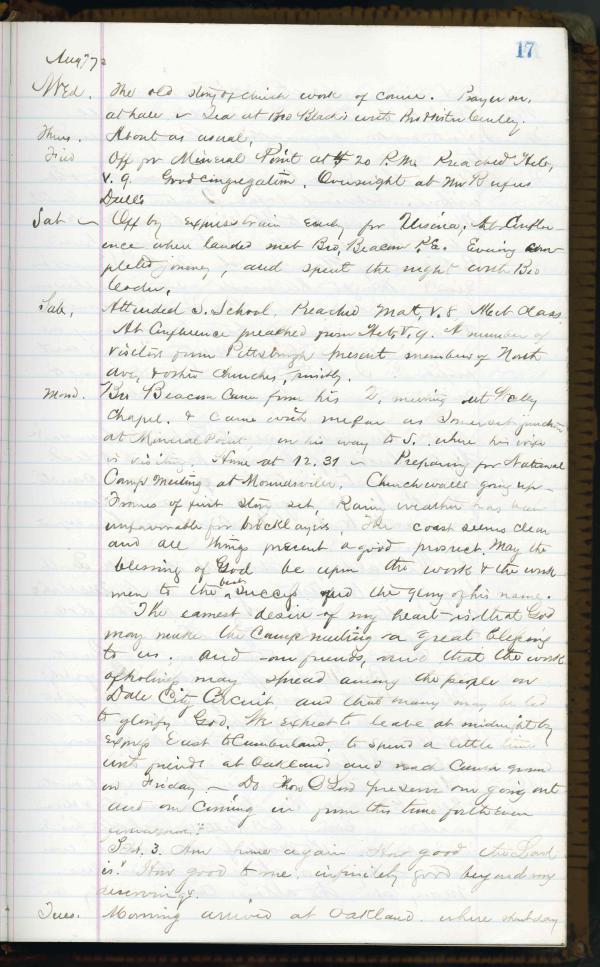 17
Aug 7 72
Wed. The old story of church work of course. Prayer m.
at hall & Tea at Bro Black's with Bro
Thurs. About as usual.
Frid Off for Mineral Point at 20 P.M. Preached Heb.
V. 9. Good congregation. Overnight at Mr Rufus
Dull's
Sat — Off by express train early for Ursina. At Conflu-
ence where landed met Bro. Beacom P.E. Evening com-
pleted journey, and spent the night with Bro
Sab. Attended S. School. Preached Mat. V. 8 Met class
At Confluence preached from Heb V. 9. A number of
visitors from Pittsburgh present members of North
Ave, & other churches,
Mond. Bro Beacom came from his meeting at
Chapel. & came with me far as Somerset junction
at Mineral Point, on his way to S. where his wife
is visiting. Home at 12.31 — Preparing for National
Camp Meeting at Moundsville. Church walls going up —
Frames of first story set. Rainy weather has been
unfavorable for bricklayers. The coast seems clear
and all things present a good prospect. May the
blessing of God be upon the work & the work-
men to the best success and the glory of his name.
The earnest desire of my heart is that God
may make the Camp meeting a great blessing
to us, and our friends, and that the work
of holiness may spread among the people on
Dale City Circuit and that many may be led
to glorify God. We expect to leave at midnight by
Express East to Cumberland, to spend a little time
with friends at Oakland and reach Camp ground
on Friday. — Do thou O Lord preserve our going out
and our coming in from this time forth even
forevermore."
Sept. 3. At home again "How good the Lord
is." How good to me, infinitely good beyond my
deservings.
Tues. Morning arrived at Oakland where spent day